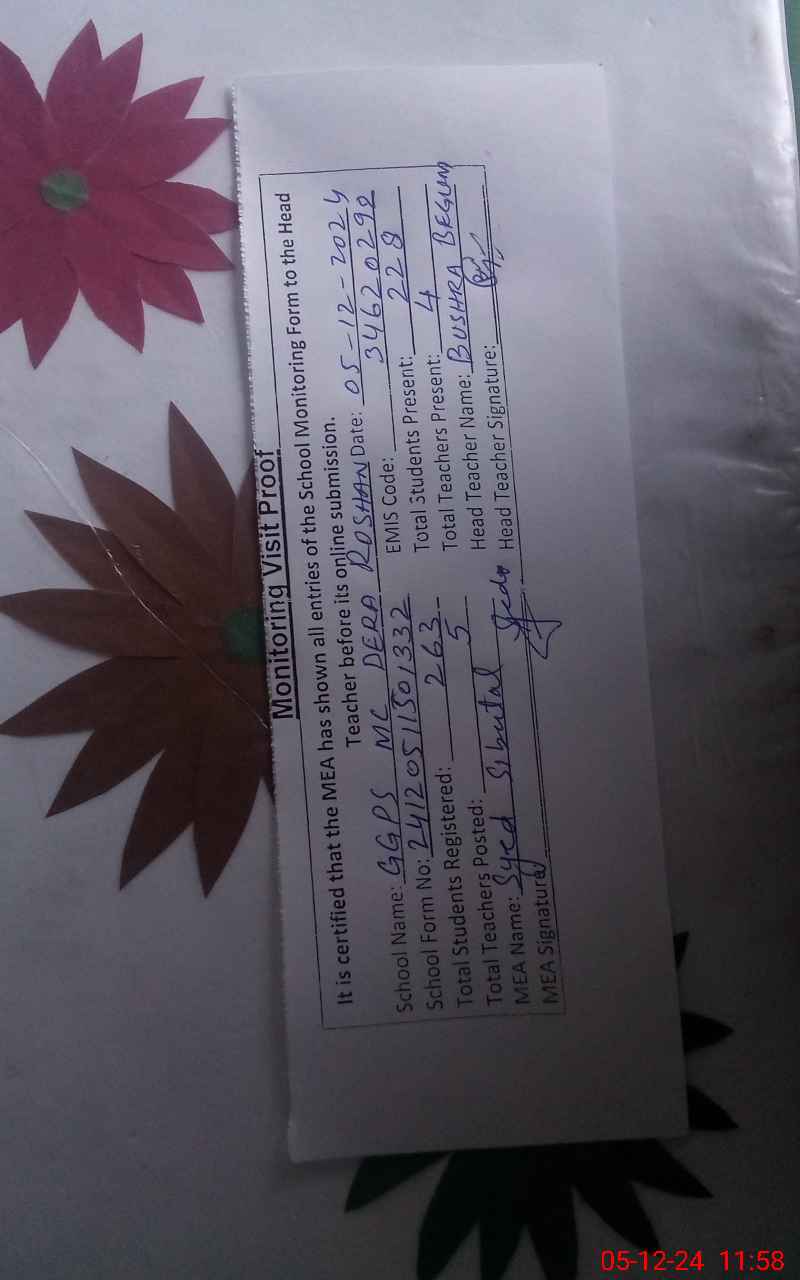 Monitoring Visit Proof
It is certified that the MEA has shown all entries of the School Monitoring Form to the Head
Teacher before its online submission.
School Name: GGPS MC DERA ROSHAN Date: 05-12-2024
School Form No: 24120511501332 EMIS Code: 34620298
Total Students Registered: 263 Total Students Present: 228
Total Teachers Posted: 5 Total Teachers Present: 4
MEA Name: Syed Head Teacher Name: BUSHRA BEGUM
MEA Signature: Head Teacher Signature:
05-12-24 11:58